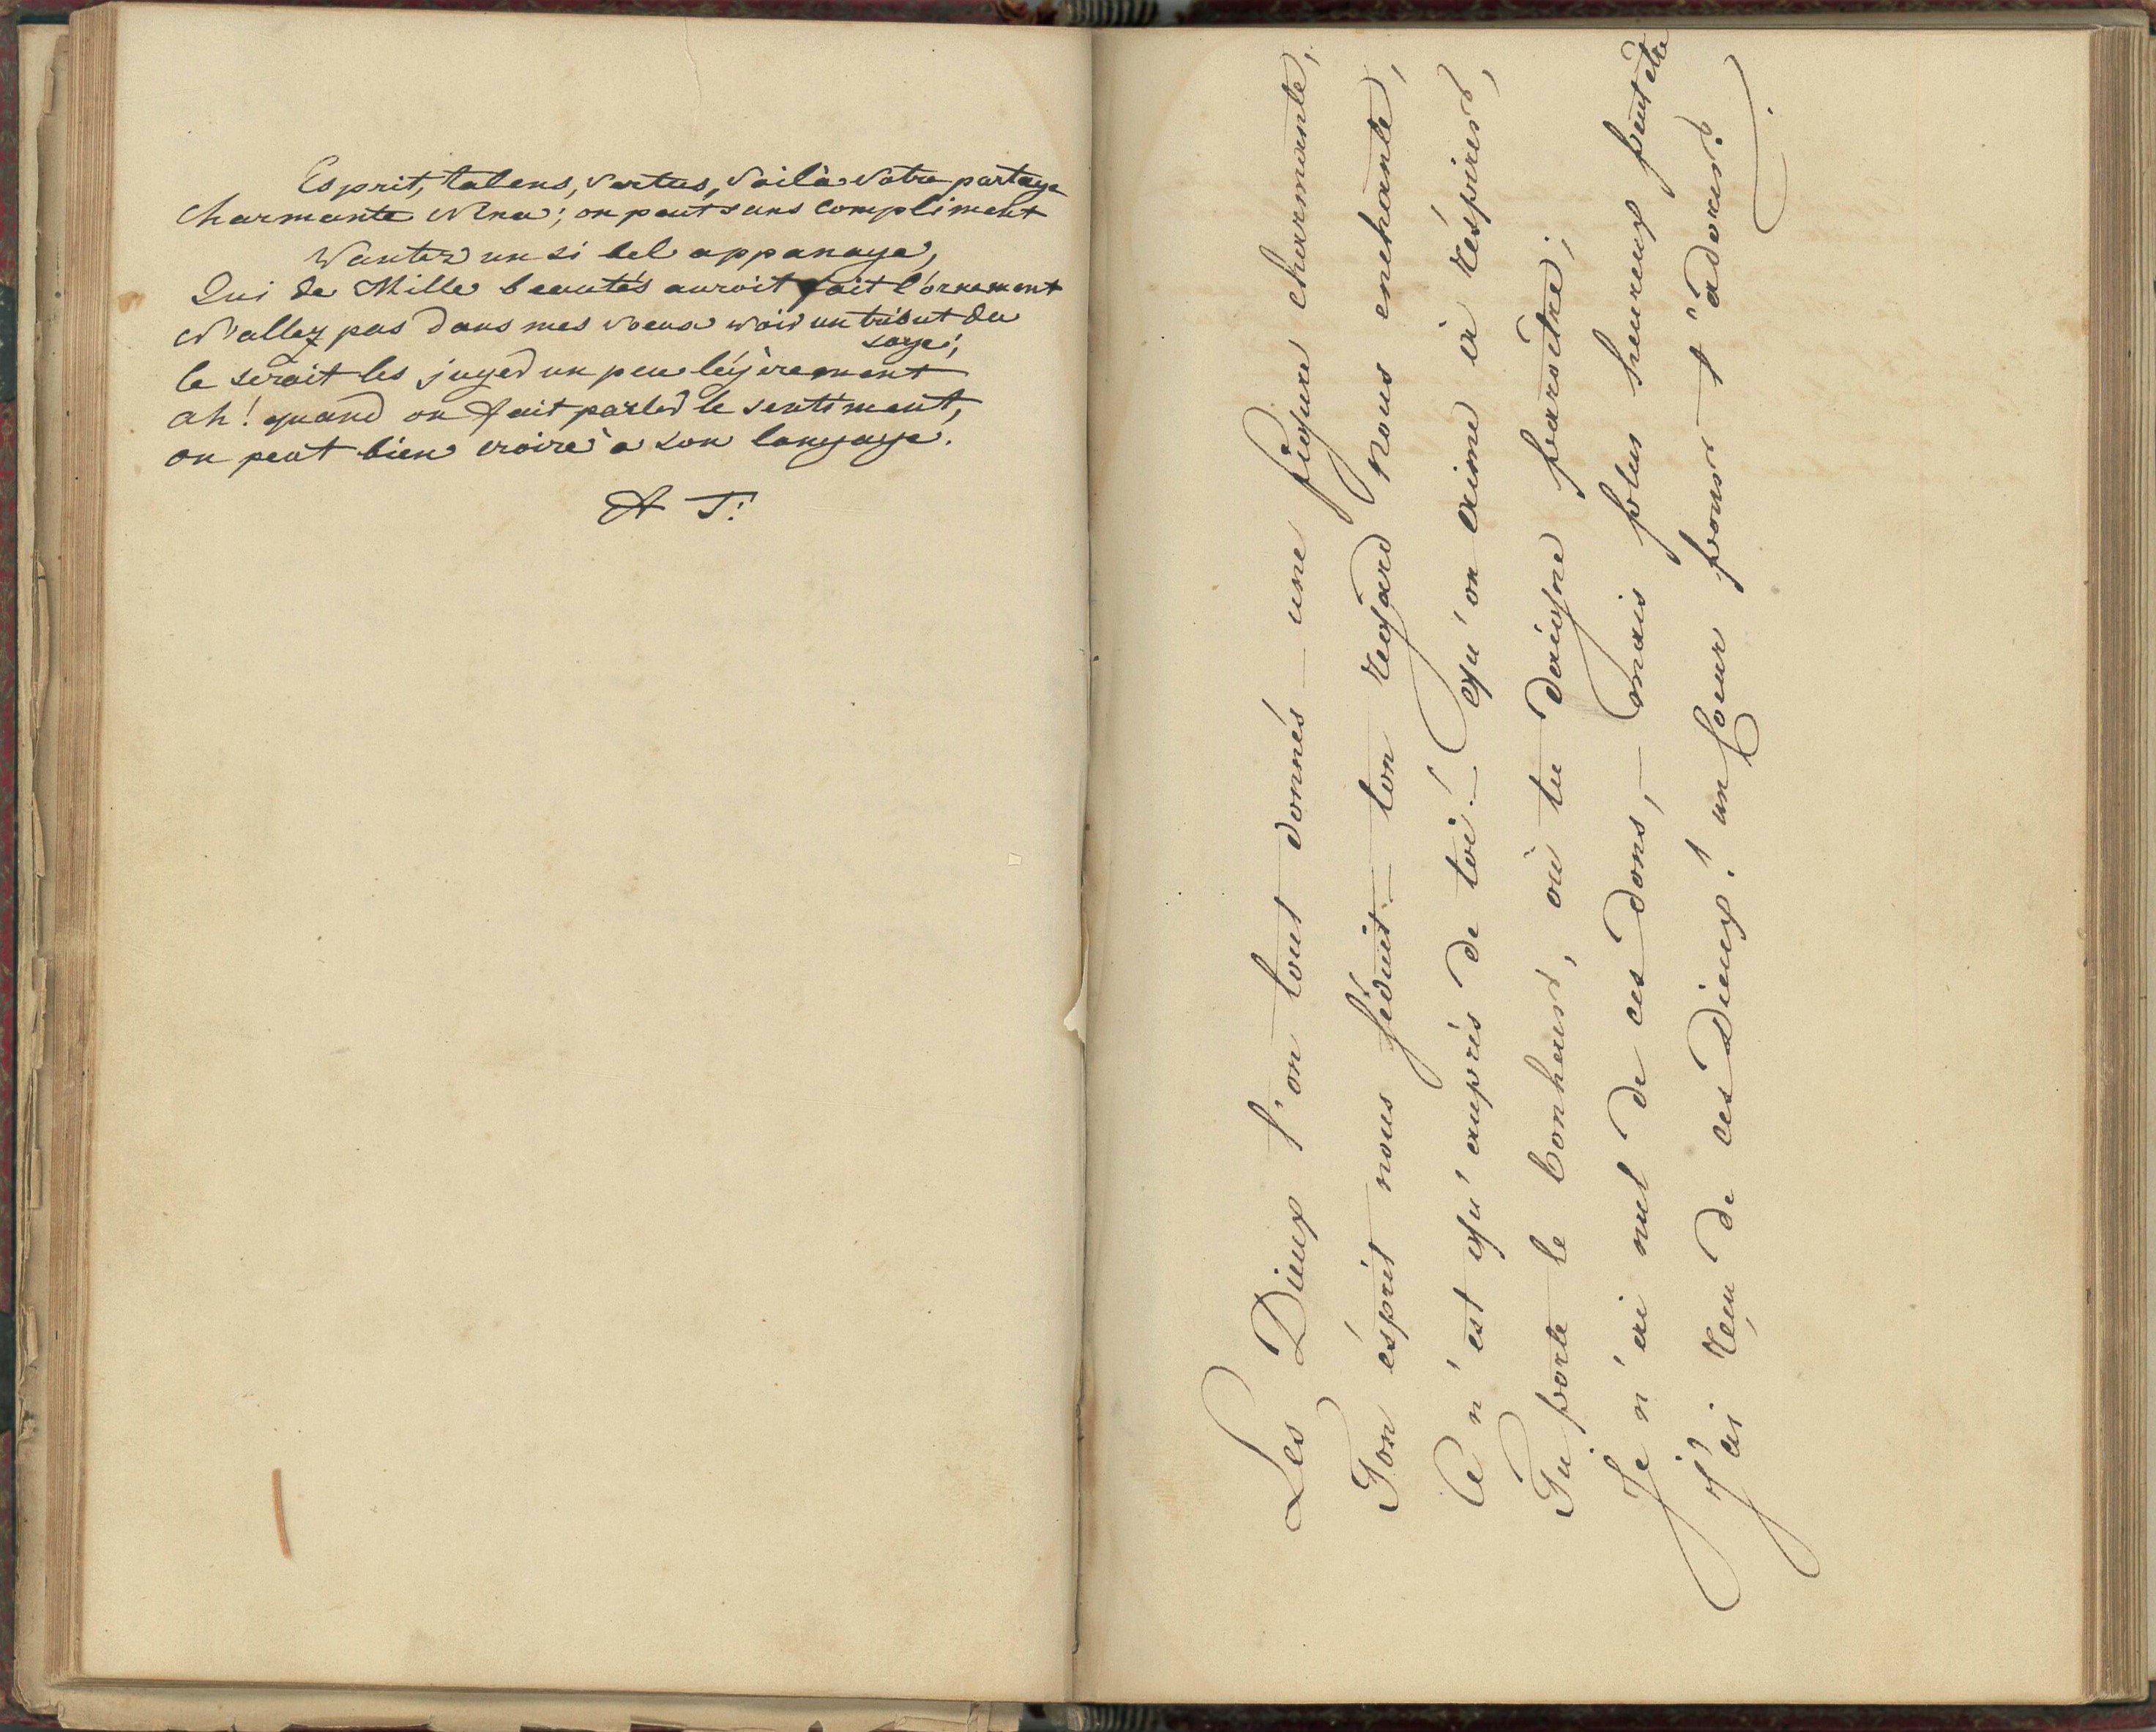 Esprit, talens, vertus, voilà votre partage
Charmante Nina; on peut sans compliment
Vanter un si bel appanage,
Qui de Mille beautés auroit fait l'ornement
N'allez pas dans mes voeux voir un tribut du
sage;
Ce seroit les juger un peu légèrement
ah! quand on fait parler le sentiment,
on peut bien croire à son langage.
A T:
Les Dieux t'on tout donnés — une figure charmante,
Ton ésprit nous séduit — ton regard nous enchante,
Ce n'est qu'auprès de toi! — qu'on aime à réspirer,
Tu porte le bonheur, où tu daigne paroître;
Je n'ai nul de ces dons, — mais plus heureux peut etre
J'ai reçu de ces Dieux! un Coeur pour t'adorer.